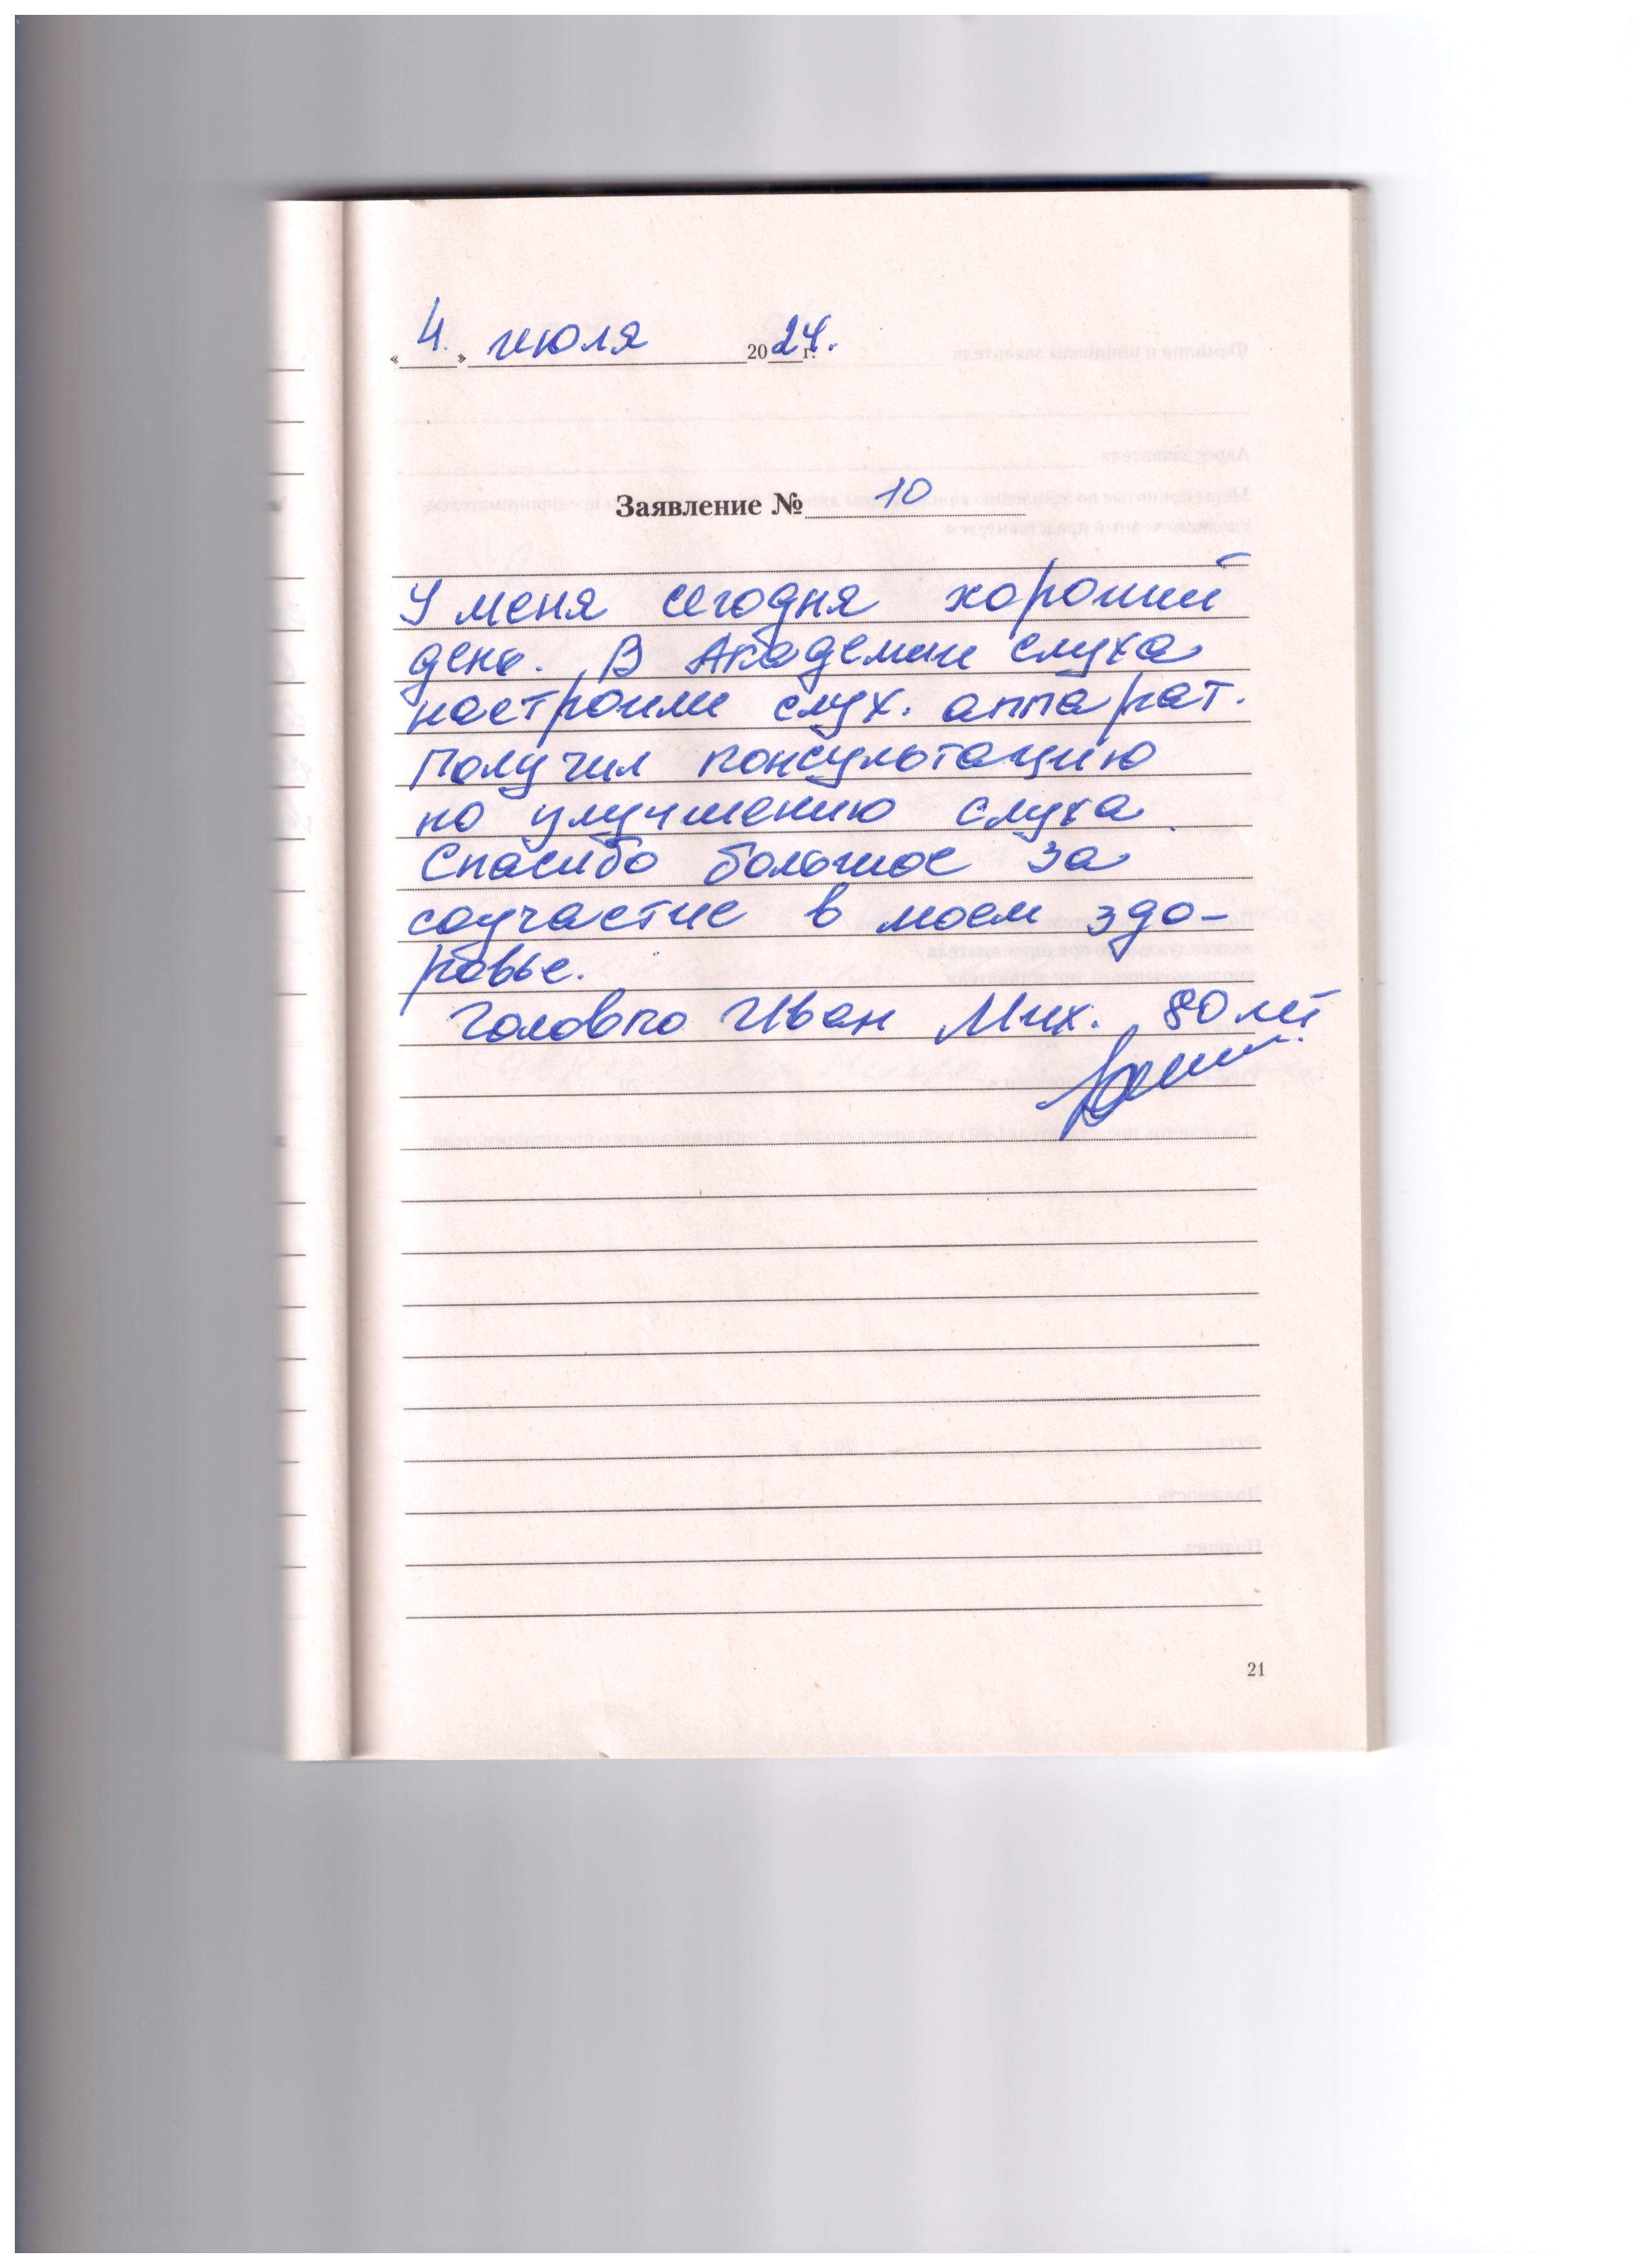 « 4. » июля 2024 г.
Заявление № 10
У меня сегодня хороший
день. В Академии слуха
настроили слух. аппарат.
Получил консультацию
по улучшению слуха.
Спасибо большое за
соучастие в моем здо-
ровье.
Головко Иван Мих. 80 лет
21